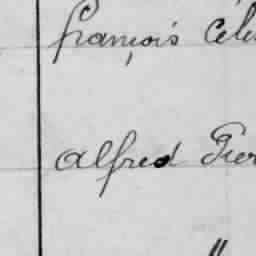 françois Cél
alfred Pier
"